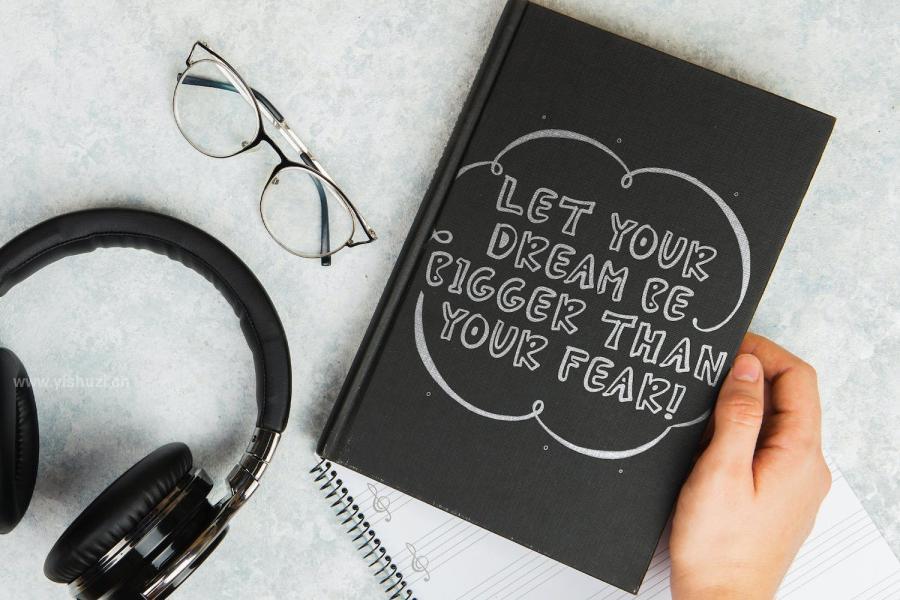 LET YOUR
DREAM BE
BIGGER THAN
YOUR FEAR!
www.yishuzi.cn